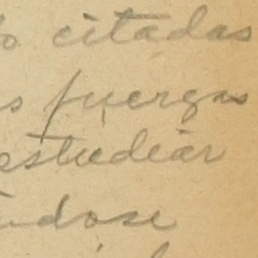 o citadas
s fuerzas
estudiar
ndose